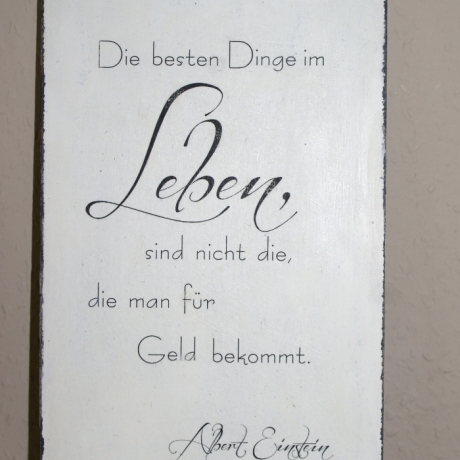 Die besten Dinge im
Leben,
sind nicht die,
die man für
Geld bekommt.
Albert Einstein